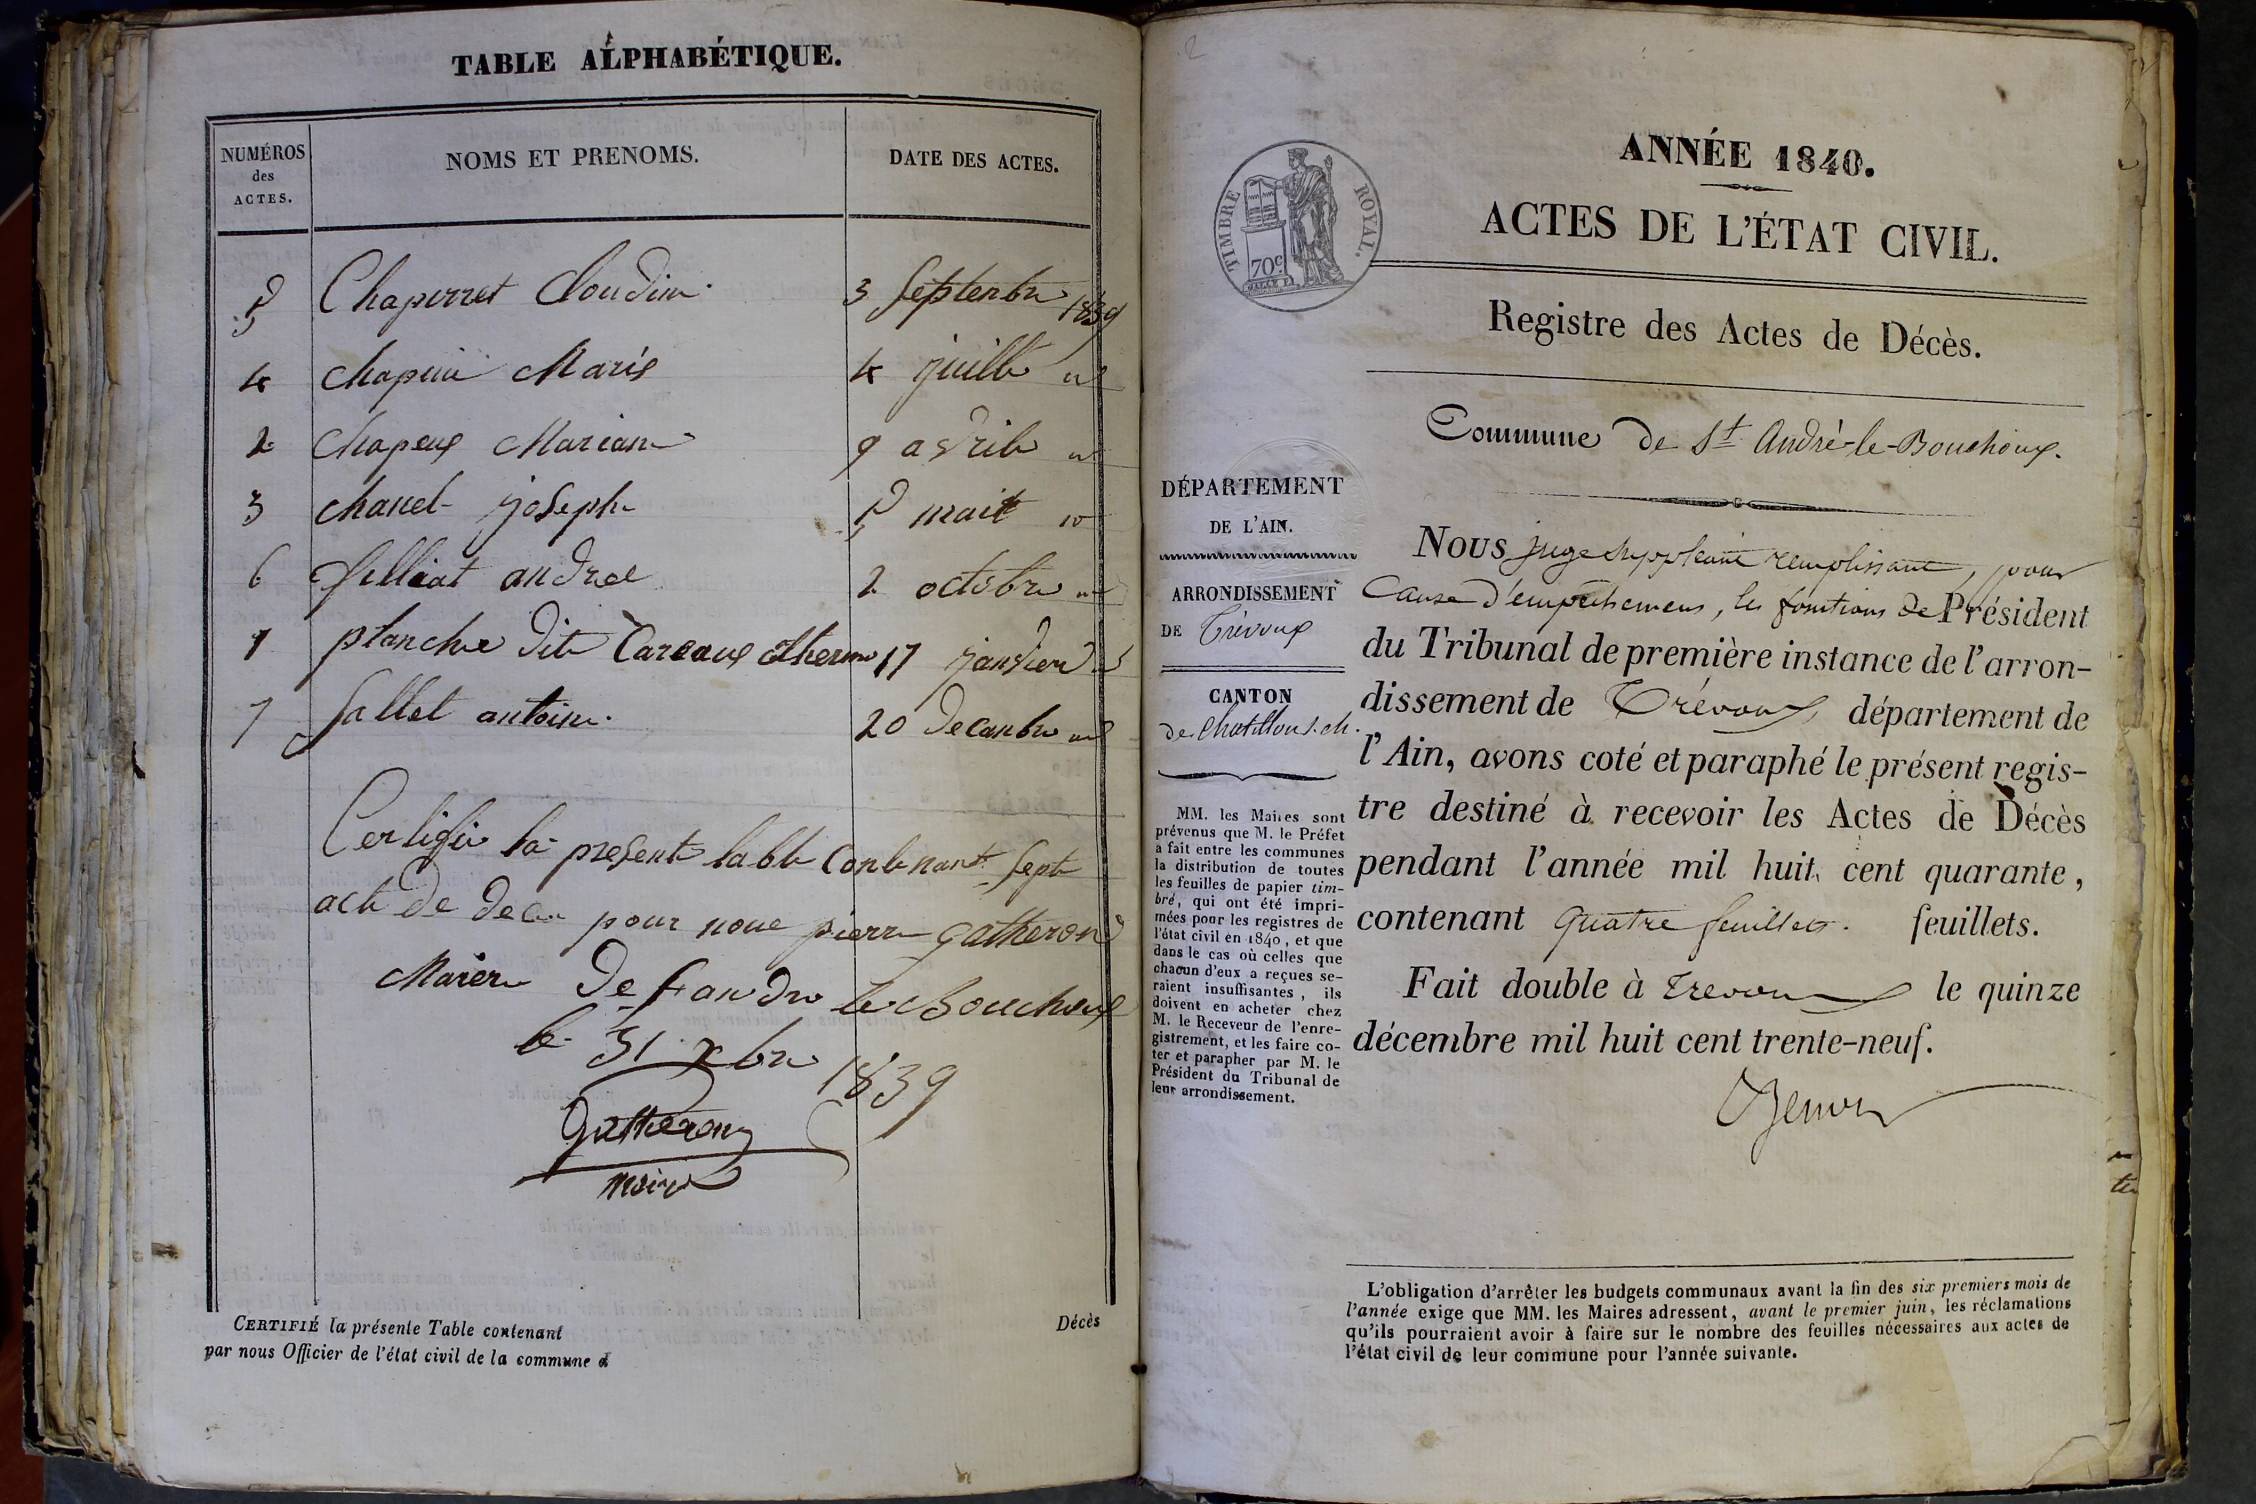 TABLE ALPHABÉTIQUE.
NUMÉROS des ACTES. NOMS ET PRENOMS. DATE DES ACTES.
5 Chaperret Cloudine 3 Septenbre 1839
4 Marie 4 juillt
2 Chapeux Mariane 9 avrile
3 Chanel joseph 5 mait
6 felliat andree 2 octobre
1 planche dite Careaux 17 janvier
7 Sallet antoine 20 decanbre
Certifie la presente table Contenant Sept
acte de deces pour nous pierre gatheron
Maiere De St andre le Bouchoux
le 31 xbre 1839
Gatheron
maire
CERTIFIÉ la présente Table contenant Décès
par nous Officier de l'état civil de la commune d
2
TIMBRE ROYAL.
70c.
ANNÉE 1840.
ACTES DE L'ÉTAT CIVIL.
Registre des Actes de Décès.
Commune de St André-le-Bouchoux.
DÉPARTEMENT
DE L'AIN.
ARRONDISSEMENT
DE Trévoux
CANTON
de Chatillon s. ch.
MM. les Maires sont
prévenus que M. le Préfet
a fait entre les communes
la distribution de toutes
les feuilles de papier tim-
bré, qui ont été impri-
mées pour les registres de
l'état civil en 1840, et que
dans le cas où celles que
chacun d'eux a reçues se-
raient insuffisantes, ils
doivent en acheter chez
M. le Receveur de l'enre-
gistrement, et les faire co-
ter et parapher par M. le
Président du Tribunal de
leur arrondissement.
NOUS juge suppléant remplissant, pour
Cause d'empêchemens, les fonctions de Président
du Tribunal de première instance de l'arron-
dissement de Trévoux, département de
l'Ain, avons coté et paraphé le présent regis-
tre destiné à recevoir les Actes de Décès
pendant l'année mil huit cent quarante,
contenant quatre feuillets. feuillets.
Fait double à Trevoux le quinze
décembre mil huit cent trente-neuf.
L'obligation d'arrêter les budgets communaux avant la fin des six premiers mois de
l'année exige que MM. les Maires adressent, avant le premier juin, les réclamations
qu'ils pourraient avoir à faire sur le nombre des feuilles nécessaires aux actes de
l'état civil de leur commune pour l'année suivante.